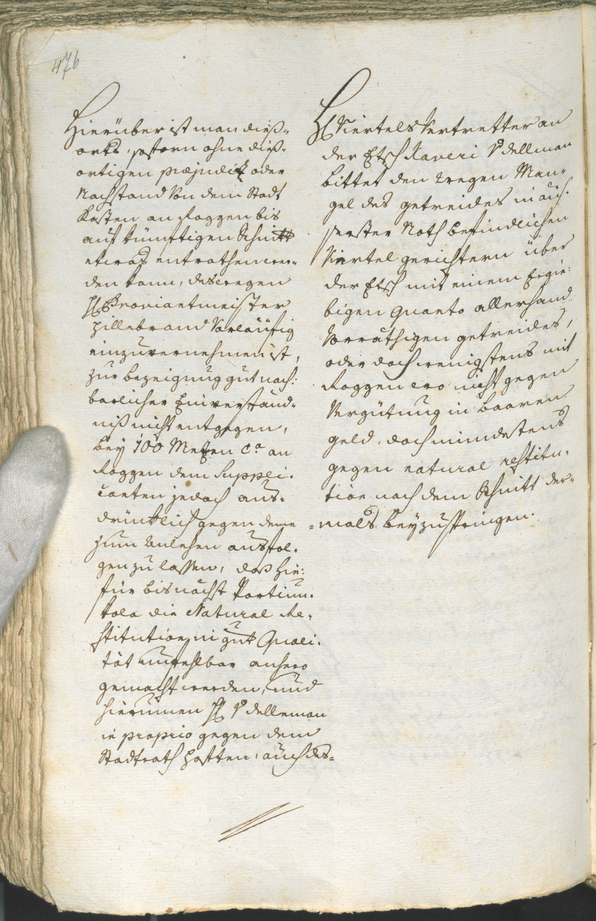 476
Hierüber ist man dieß-
orths, sofern ohne dieß-
ortigen præjudiz oder
Nachstand von dem Stadt
Kasten an Roggen bis
auf künftigen Schnitt
etwas entrathen wer-
den kann, deswegen
H. Proviantmeister
Hillebrand vorläufig
einzuvernehmen ist,
zur bezeigung gut nach-
barlicher Einverständ-
niß nicht entgegen,
bey 100 Metzen c.a an
Roggen dem Suppli-
canten jedoch aus-
drücklich gegen deme
zum Anlehen ausfol-
gen zu lassen, daß hie-
für bis nächst Portiun-
kola die Natural Re-
stitution in gut Quali-
tät unfehlbar anhero
gemacht werden, und
hierumen H. v Delleman
in proprio gegen dem
Stadtrath haften, auch des-
H. Viertels Vertretter an
der Etsch Xaveri v Dellman
bittet den wegen Man-
gel des getreides in äus-
serster Noth befindlichen
Viertel gerichtern über
der Etsch mit einem ergie-
bigen Quanto allerhand
vorräthigen getreides,
oder doch wenigstens mit
Roggen wo nicht gegen
Vergütung in baaren
geld, doch mindestens
gegen natural restitu-
tion nach dem Schnitt der-
mals beyzuspringen.